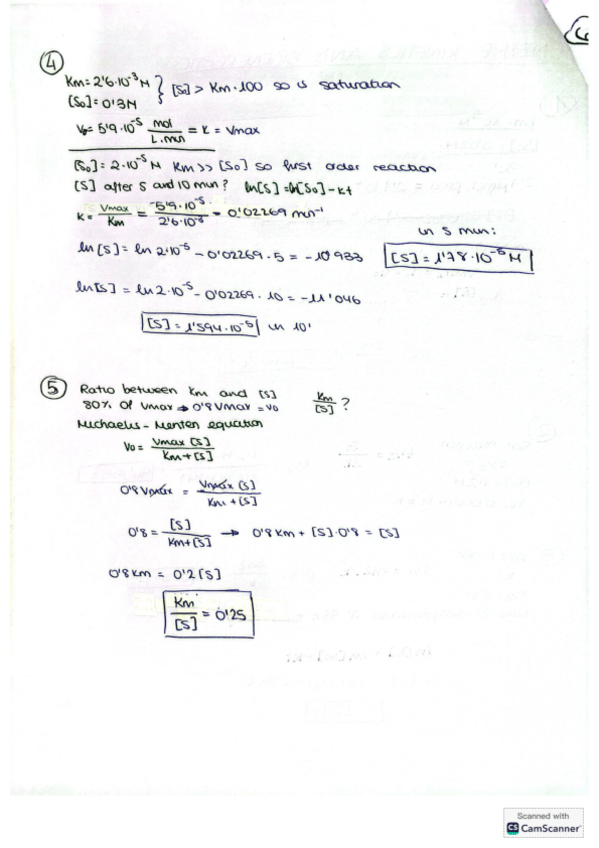 4
Km = 2'6·10⁻³ M
[So] = 0'3 M
} [So] > Km·100 so is saturation
Vo = 5'9·10⁻⁵ mol/L.min = K = Vmax
[So] = 2·10⁻⁵ M Km >> [So] so first order reaction
[S] after 5 and 10 min? ln[S] = ln[So] - Kt
K = Vmax/Km = 5'9·10⁻⁵/2'6·10⁻³ = 0'02269 min⁻¹
in 5 min:
ln [S] = ln 2·10⁻⁵ - 0'02269·5 = -10'933 [S] = 1'78·10⁻⁵ M
ln[S] = ln 2·10⁻⁵ - 0'02269·10 = -11'046
[S] = 1'594·10⁻⁵ in 10'
5 Ratio between Km and [S] Km/[S]?
80% of Vmax ⇒ 0'8 Vmax = Vo
Michaelis-Menten equation
Vo = Vmax [S]/Km + [S]
0'8 Vmax = Vmax [S]/Km + [S]
0'8 = [S]/Km+[S] → 0'8 Km + [S]·0'8 = [S]
0'8 Km = 0'2 [S]
Km/[S] = 0'25
Scanned with
CS CamScanner